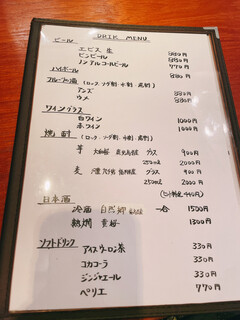 DRIK MENU
ビール
エビス 生 880円
ビンビール 880円
ノンアルコールビール 770円
ハイボール 880円
フルーツの酒 (ロック・ソーダ割・水割・お湯割)
アンズ 880円
ウメ 880円
ワイングラス
白ワイン 1000円
赤ワイン 1000円
焼酎 (ロック・ソーダ割・水割・お湯割)
芋 グラス 900円
250ml 2000円
麦 グラス 900円
250ml 2000円
日本酒
冷酒 自然郷 一合 1500円
熱燗 1300円
ソフトドリンク
アイスウーロン茶 330円
コカコーラ 330円
ジンジャエール 330円
ペリエ 770円